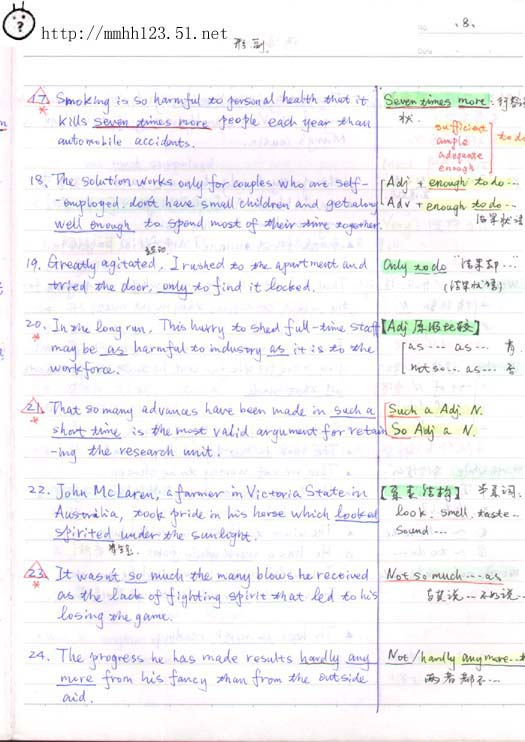 http://mmhh123.51.net
No. 8.
形副
Date
17. Smoking is so harmful to personal health that it
kills seven times more people each year than
automobile accidents.
Seven times more:
状.
sufficient
ample
adequate
enough
to do
18. The solution works only for couples who are self-
-employed, don't have small children and get along
well enough to spend most of their time together.
Adj + enough to do...
Adv + enough to do...
结果状语
19. Greatly agitated, I rushed to the apartment and
tried the door, only to find it locked.
Only to do "结果却..."
(结果状语)
20. In the long run, This hurry to shed full-time staff
may be as harmful to industry as it is to the
workforce.
【Adj 原级比较】
as... as... 肯.
not so... as... 否
21. That so many advances have been made in such a
short time is the most valid argument for retain
-ing the research unit.
Such a Adj. N.
So Adj a N.
22. John McLaren, a farmer in Victoria State in
Australia, took pride in his horse which looked
spirited under the sunlight.
【系表结构】 半系词:
look. smell. taste...
Sound...
23. It wasn't so much the many blows he received
as the lack of fighting spirit that led to his
losing the game.
Not so much... as
与其说...不如说...
24. The progress he has made results hardly any
more from his fancy than from the outside
aid.
Not / hardly any more...
两者都不...